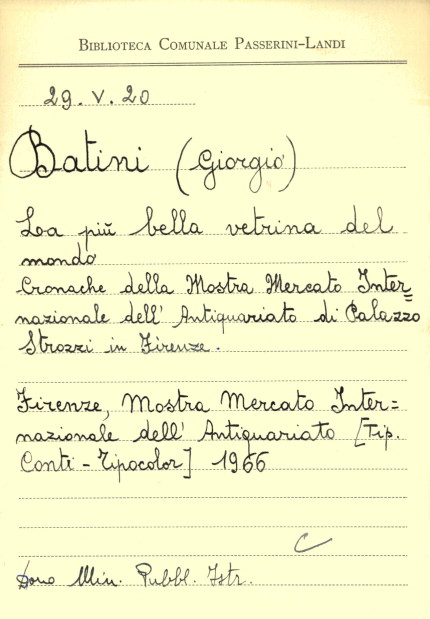 BIBLIOTECA COMUNALE PASSERINI-LANDI
29. V. 20
Batini (Giorgio)
La più bella vetrina del
mondo
Cronache della Mostra Mercato Inter=
nazionale dell' Antiquariato di Palazzo
Strozzi in Firenze.
Firenze, Mostra Mercato Inter=
nazionale dell' Antiquariato [Tip.
Conti - Tipocolor] 1966
C
Dono Min. Pubbl. Istr.